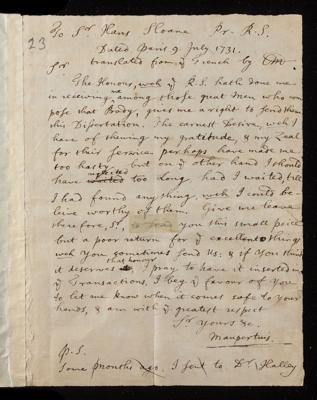 23
To Sr Hans Sloane Pr. R.S.
Dated Paris 9 July 1731.
Sr translated from ye French by CM.
The Honour, wch ye R.S. hath done me
in receiving me among those great Men who com
pose that Body, gives me a right to send them
this Dissertation. The earnest Desire, wch I
have of shewing my gratitude, & my Zeal
for their Service perhaps have made me
too hasty. but on ye other hand I should
have neglected too long, had I waited till
I had found any thing, wch I could be-
lieve worthy of them. Give me leave
therefore, Sr, to send you this small peice
but a poor return for ye excellent things
wch You sometimes send Us: & if You think
it deserves that honour, I pray to have it inserted in
ye Transactions. I beg ye favour of You
to let me know when it comes safe to your
hands, & am with ye greatest respect
Sr Yours &c.
Maupertuis.
P.S.
Some months ago I sent to Dr Halley